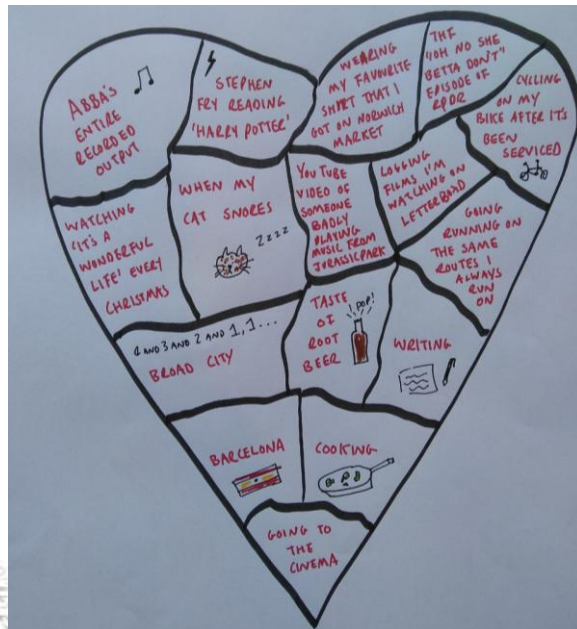 ABBA'S
ENTIRE
RECORDED
OUTPUT
STEPHEN
FRY READING
'HARRY POTTER'
WEARING
MY FAVOURITE
SHIRT THAT I
GOT ON NORWICH
MARKET
THE
"OH NO SHE
BETTA DON'T"
EPISODE OF
RPDR
CYCLING
ON MY
BIKE AFTER IT'S
BEEN
SERVICED
WATCHING
'IT'S A
WONDERFUL
LIFE' EVERY
CHRISTMAS
WHEN MY
CAT SNORES
ZZZZ
YOUTUBE
VIDEO OF
SOMEONE
BADLY
PLAYING
MUSIC FROM
JURASSIC PARK
LOGGING
FILMS I'M
WATCHING ON
LETTERBOXD
GOING
RUNNING ON
THE SAME
ROUTES I
ALWAYS
RUN
ON
4 AND 3 AND 2 AND 1, 1...
BROAD CITY
TASTE
OF
ROOT
BEER
POP!
WRITING
BARCELONA
COOKING
GOING TO
THE
CINEMA